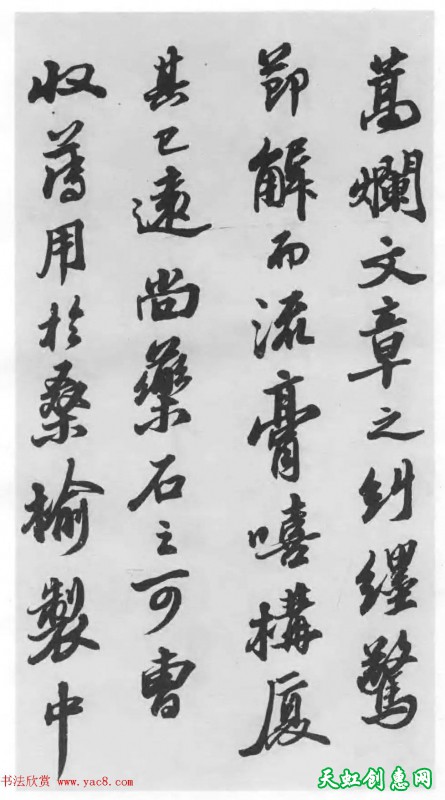 蒿爛文章之糾纆驚
節解而流膏嘻構厦
其已遠尚藥石之可曹
收薄用於桑榆製中
书法欣赏 www.yac8.com
天虹创惠网